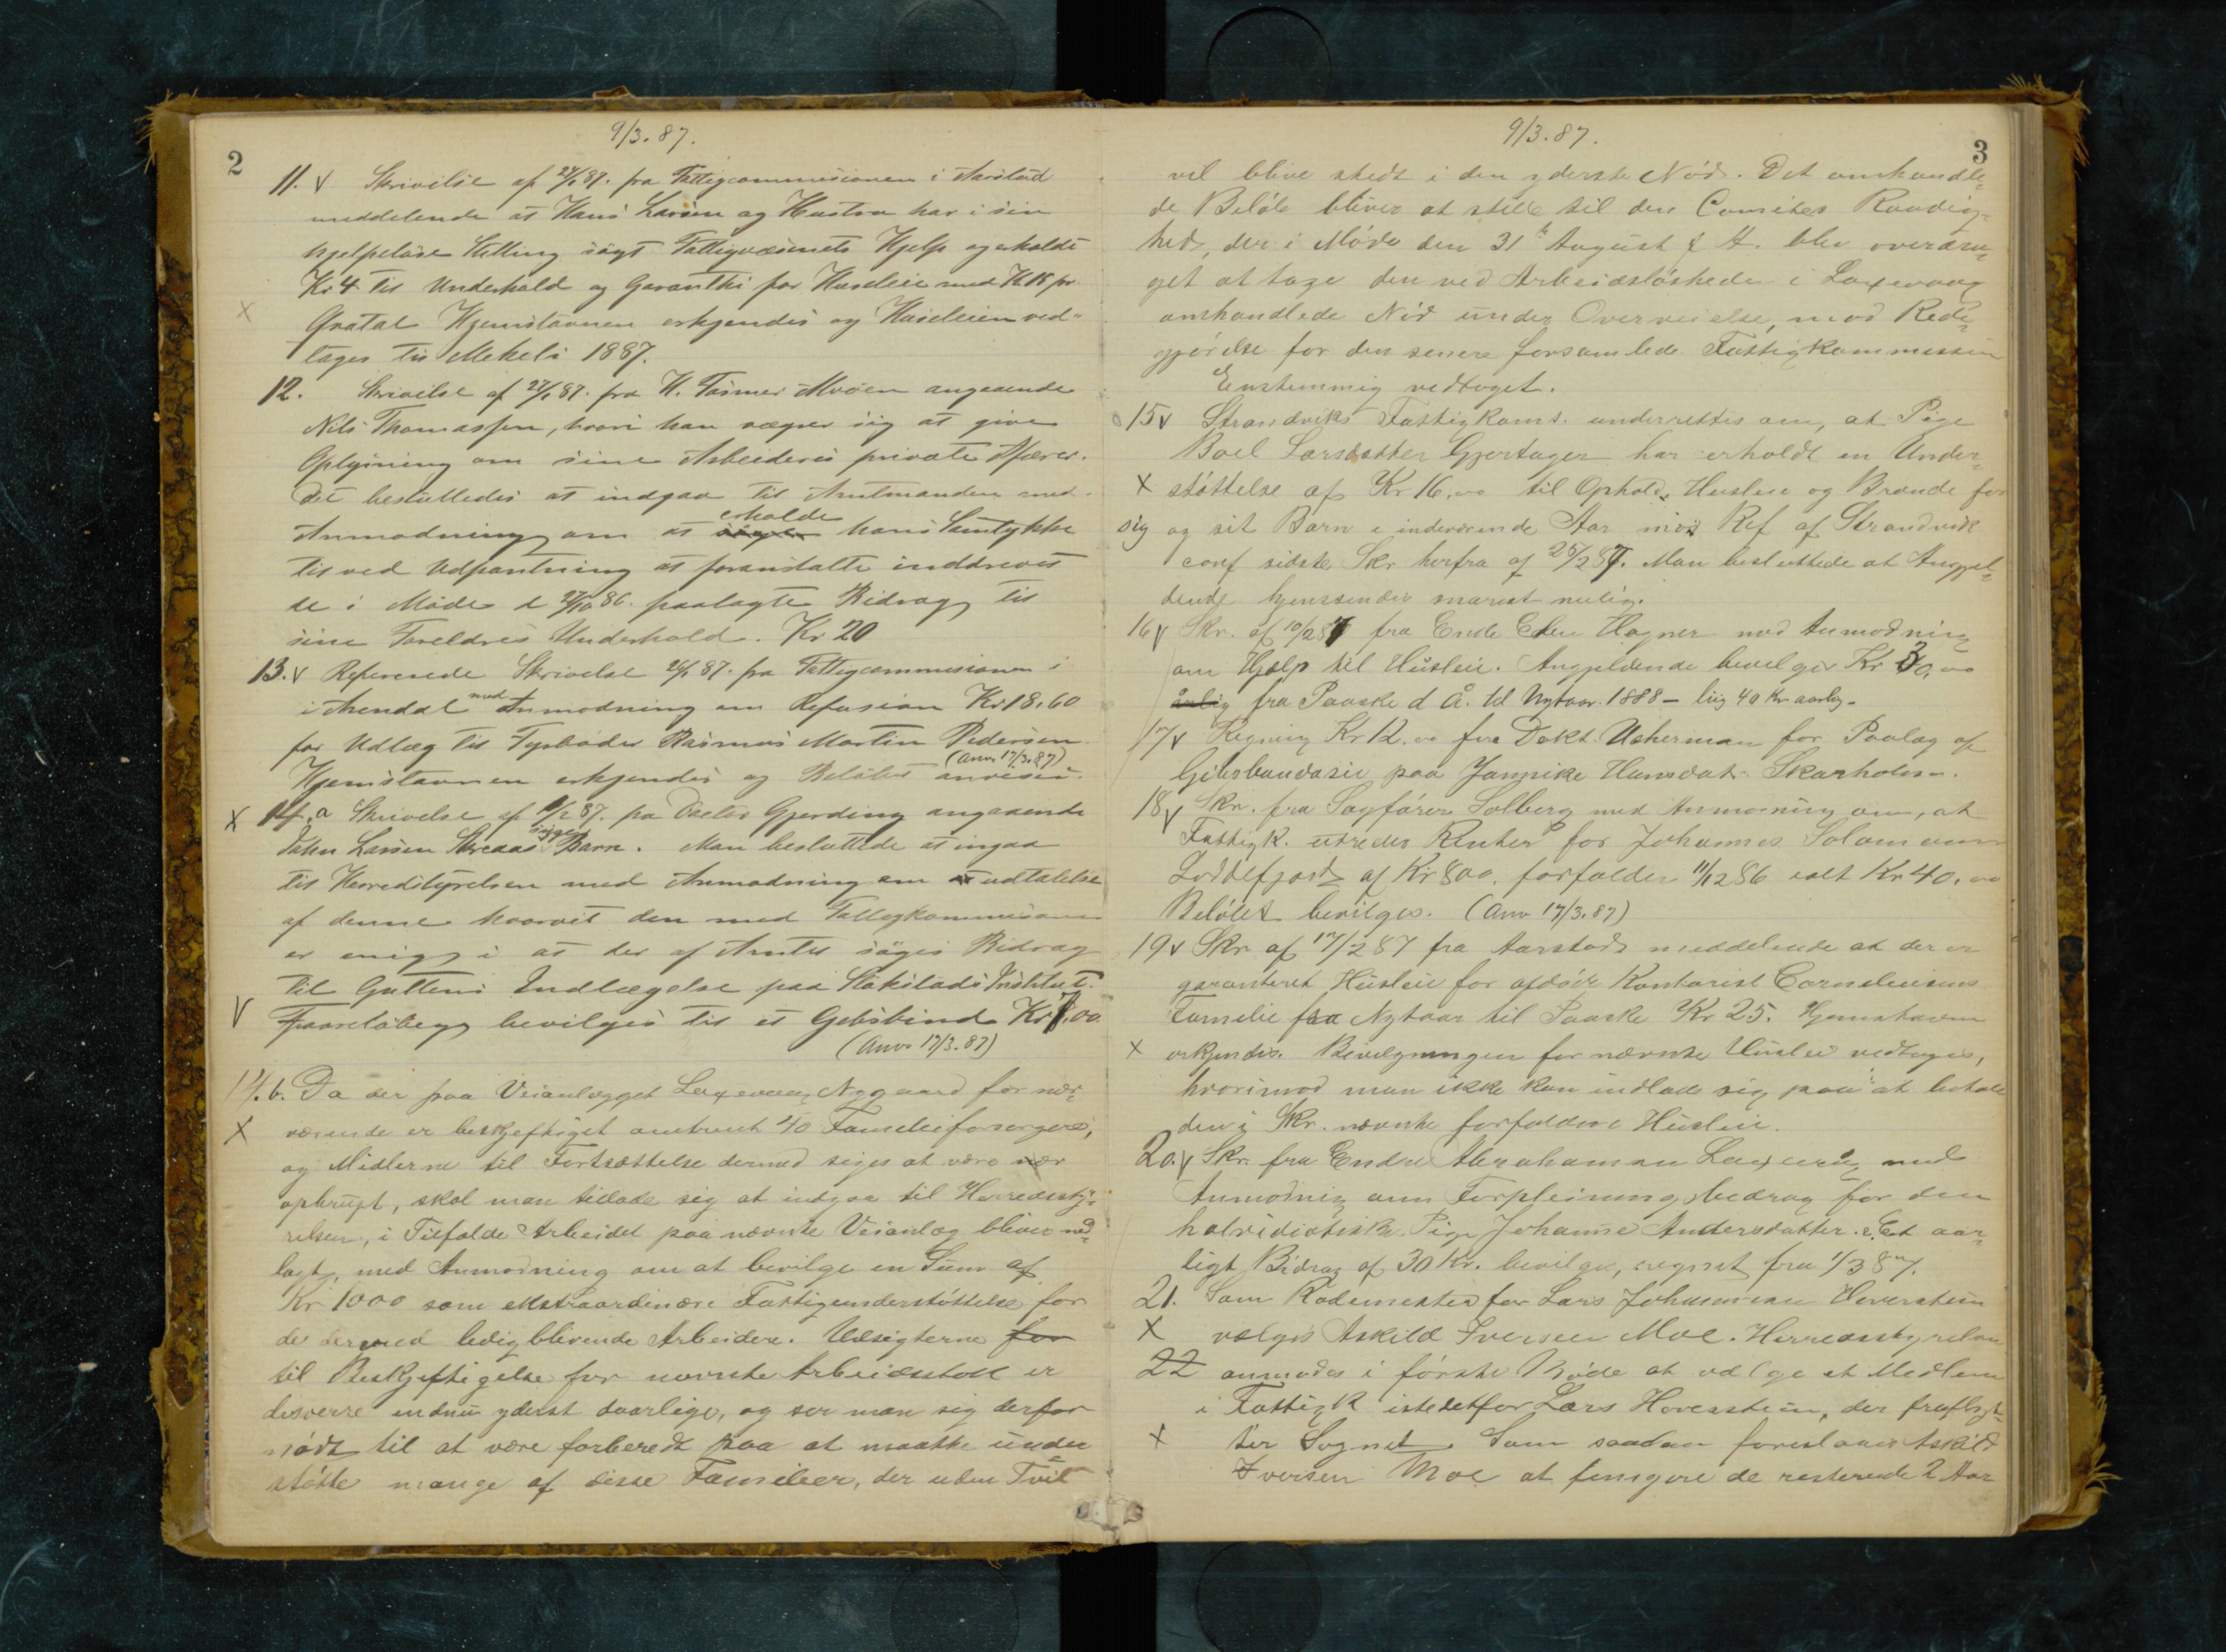 9/3.87.
2
11. V Skrivelse af 27/1 87. fra Fattigcommisionen i Aarstad
meddelende at Hans Larsen og Hustru har i sin
hjelpeløse Stilling søgt Fattigvæsenets Hjelp og erholdt
Kr 4 til Underhold og Garanthi for Husleie med Kr 15 pr.
X Qvatal Hjemstavnen erkjendes og Husleien ved-
tages til Mikeli 1887.
12. Skrivelse af 27/1 87. fra H. Fasmer Alvøen angaaende
Nils Thomassen, hvori han vægrer sig at give
Oplysning om sine Arbeideres private Affærer.
Det besluttedes at indgaa til Amtmanden med
Anmodning om at søge erholde hans Samtykke
til ved Udpantning at foranstalte inddrevet
de i Møde d 27/10 86. paalagte Bidrag til
sine Foreldres Underhold. Kr 20
13. V Refererede Skrivelse 26/1 87. fra Fattigcommisionen i
Arendal med Anmodning om Refusion Kr 18,60
for Udlæg til Fyrbøder Rasmus Martin Pedersen
Hjemstavnen erkjendes og Beløbet anvises. (Anv 17/3.87)
X 14.a Skrivelse af 9/2 87. fra Doctor Gjerding angaaende
John Larsen Skreaas syge Barn. Man besluttede at ingaa
til Herredstyrelsen med Anmodning om at udtalelse
af denne hvorvit den med Fattigkommisionen
er enig i at der af Amtet søges Bidrag
til Guttens Indlægelse paa Institut.
V Foreløbig bevilges til et Gibsbind Kr 8,00.
(Anv 17/3.87)
14.b. Da der paa Veianlægget Laxevaag Nygaard for nær-
X værende er beskjeftiget omtrent 40 Familieforsørgere,
og Midlerne til Fortsættelse dermed siges at være nær
opbrugt, skal man tillade sig at indgaa til Herredssty-
relsen, i Tilfælde Arbeidet paa nævnte Veianlæg bliver ned-
lagt, med Anmodning om at bevilge en Sum af
Kr 1000 som ekstraordinære Fattigunderstøttelse for
de dermed ledigblivende Arbeidere. Udsigterne for
til Beskjeftigelse for nævnte Arbeidsstok er
desverre endnu yderst daarlige, og ser man sig derfor
nødt til at være forberedt paa at maatte under
støtte mange af disse Familier, der uden Tvil
9/3.87.
3
vil blive stedt i den yderste Nød. Det omhandle-
de Beløb bliver at stille til den Comites Raadig-
hed, der i Møde den 31te August f A. blev overdra-
get at tage den ved Arbeidsløsheden i Laxevaag
omhandlede Nød under Overveielse, mod Rede-
gjørelse for den senere forsamlede Fattigkommission
Enstemmig vedtaget.
15 V Strandviks Fattigkoms. underrettes om, at Pige
Boel Larsdatter Gjertager har erholdt en Under-
X støttelse af Kr 16.00 til Ophold, Husleie og Brænde for
sig og sit Barn i indeværende Aar mod Ref af Strandvik
conf sidste Skr herfra af 25/2 87. Man besluttede at Angjæl-
dende hjemsendes snarest mulig.
16 V Skr. af 10/2 87 fra Enke Elen Hagner med Anmodning
om Hjælp til Husleie. Angjeldende bevilges Kr 30,00
årlig fra Paaske d Å. til Nytaar 1888 – lig 40 Kr aarlig.
17 V Regning Kr 12.00 fra Dokt. Ucherman for Paalæg af
Gibsbandasie paa Jannike Hansdat. Skarholm.
18 V Skr. fra Sagfører Solberg med Anmodning om, at
Fattigk. utreder Renter for Johannes Salomonsen
Loddefjord af Kr 800, forfalden 11/12 86 ialt Kr 40,00
Beløbet bevilges. (Anv 17/3.87)
19 V Skr af 17/2 87 fra Aarstad meddelende at der er
garanteret Husleie for afdøde Kontorist Corneliusens
Familie fra Nytaar til Paaske Kr 25. Hjemstavnen
X erkjendes. Bevilgningen for nævnte Husleie vedtages,
hvorimod man ikke kan indlade sig paa at betale
den i Skr. nævnte forfaldne Husleie.
20. V Skr. fra Endre Abrahamsen Laxevaag med
Anmodnig om Forpleiningsbedrag for den
halvidiotiske Pige Johanne Andersdatter. Et aar-
ligt Bidrag af 30 Kr. bevilges, regnet fra 1/3 87.
21. Som Rodemester for Lars Johannesen Hoverstein
X vælges Askild Iversen Moe. Herredsstyrelsen
22 anmodes i første Møde at vælge et Medlem
i Fattigk istedetfor Lars Hoverstein, der fraflyt-
X ter Sognet. Som saadan foreslaaes Askild
Iversen Moe at fungere de resterende 2 Aar